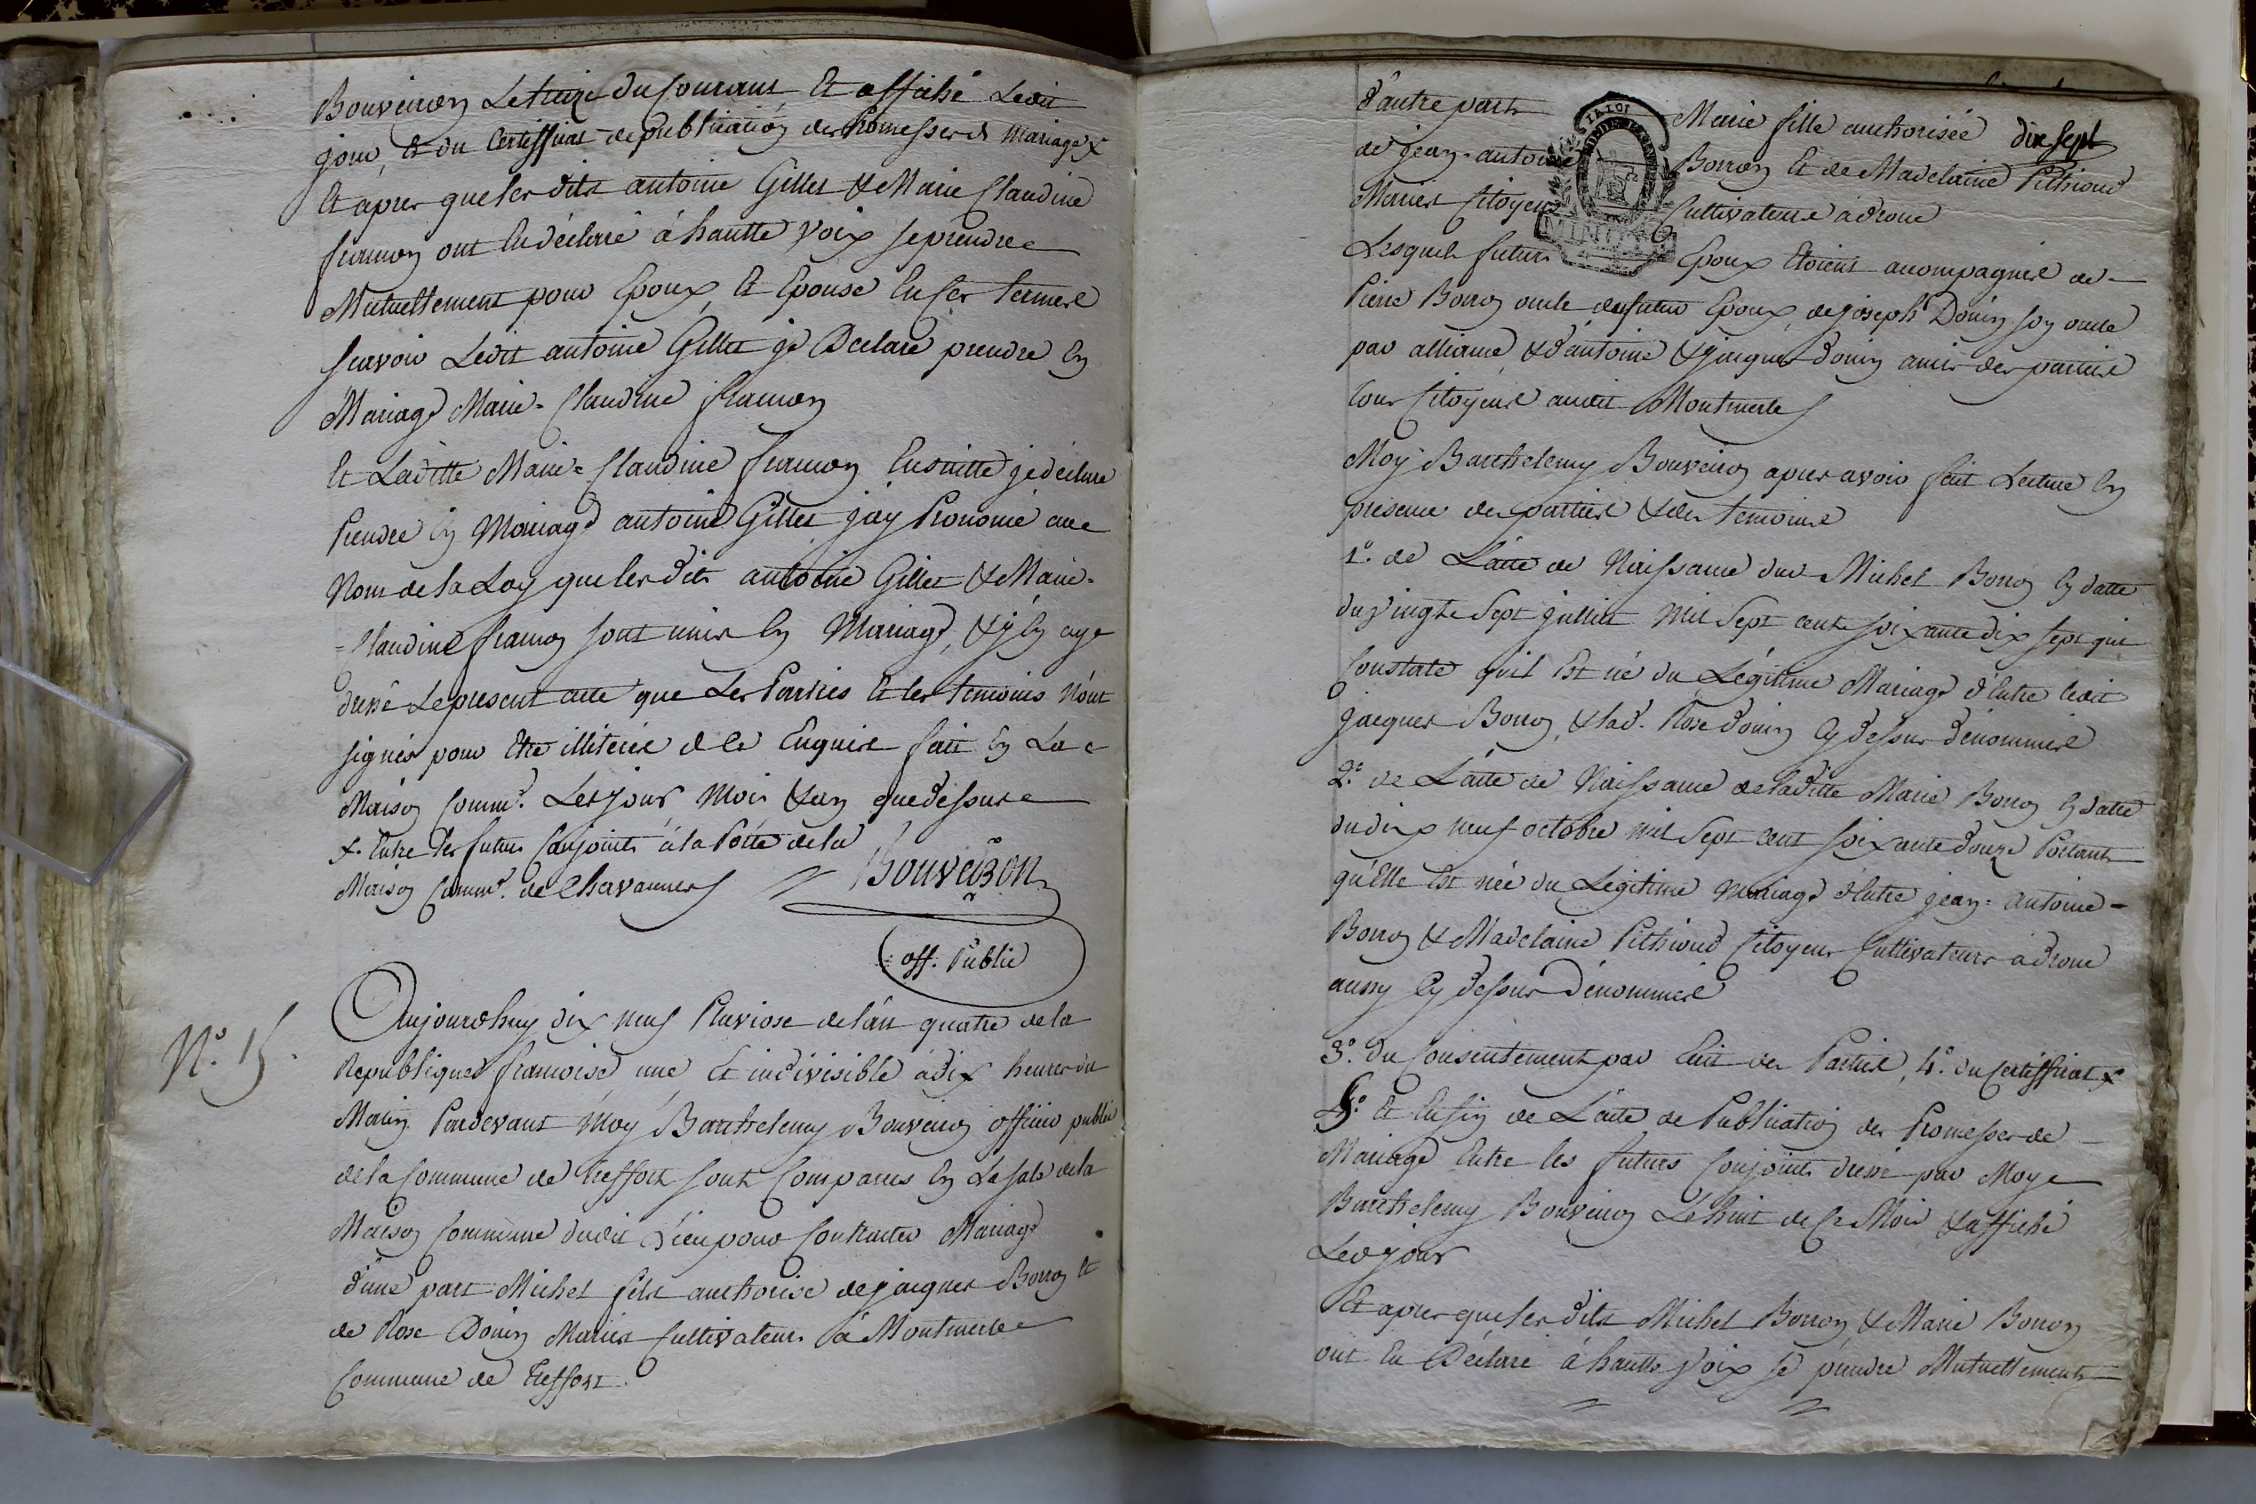 Bouveiron Le treize du Courant Et affiché Ledit
jour, Et du Certiffirat de publication des Promesses de Mariage x
Et apres que les dits antoine Gillet & Marie Claudine
framon ont Eu déclaré á hautte voix se prendre
Mutuellement pour Epoux, Et Epouse En Ces termes
scavoir Ledit antoine Gillet je Déclare prendre En
Mariage Marie-Claudine framon
Et Laditte Marie=Claudine framon Ensuitte je déclare
Prendre En Mariage antoine Gillet j'ay Prononcé au
Nom de la Loy que les dits antoine Gillet & Marie-
=Claudine framon sont unis En Mariage, & j'En aye
dressé Le present acte que Les Parties Et les temoins N'ont
signés pour Etre illiterés de ce Enquis fait En La
Maison Commne. Les jour Mois & an que dessus
x. Entre les futurs Conjoints á la Porte de la
Maison Commne. de Chavannes
Bouveiron
off. Public
N.° 15.
Aujourdhuy dix neuf Pluviose de l'an quatre de la
Republique francoise une Et indivisible á dix heures du
Matin Pardevant Moy Barthelemy Bouveiron officier public
de la Commune de treffort sont Comparus En La sale de la
Maison Commune dudit Lieu pour Contracter Mariage
d'une part Michel fils authorisé de jacques Borron Et
de Rose Donin Mariés Cultivateurs á Montmerle
Commune de treffort.
dix sept
d'autre part Marie fille authorisée
de jean-antoine Borron Et de Madelaine Pithioud
Mariés Citoyens Cultivateurs á drom
Lesquels futurs Epoux Etoient acompagnés de
Pierre Borron oncle du futur Epoux, de joseph Donin son oncle
par alliance, & d'antoine & jacques Donin amis des parties
tous Citoyens audit Montmerle
Moy Barthelemy Bouveiron apres avoir fait Lecture En
presence des parties & des temoins
1.° de L'acte de Naissance dud Michel Borron En datte
du vingt Sept juillet Mil Sept cent soixante dix sept qui
Constate qu'il Est né du Légitime Mariage d'Entre ledit
jacques Borron, & lad. Rose donin Cy dessus dénommés
2.° de L'acte de Naissance de laditte Marie Borron En datte
du dix neuf octobre mil Sept cent soixante douze Portant
qu'Elle Est née du Legitime Mariage d'Entre jean-antoine-
Borron & Madelaine Pithioud Citoyens Cultivateurs á drom
aussy Cy dessus Dénommés
3.° du Consentement par Ecrit des Parties, 4.° du Certiffirat x
5.° Et Enfin de L'acte de Publication des Promesses de
Mariage Entre les futurs Conjoints dressé par Moy
Barthelemy Bouveiron Le huit de Ce Mois & affiché
Led jour
Et apres que les dits Michel Borron & Marie Borron
ont Eu Déclaré á hautte voix se prendre Mutuellement